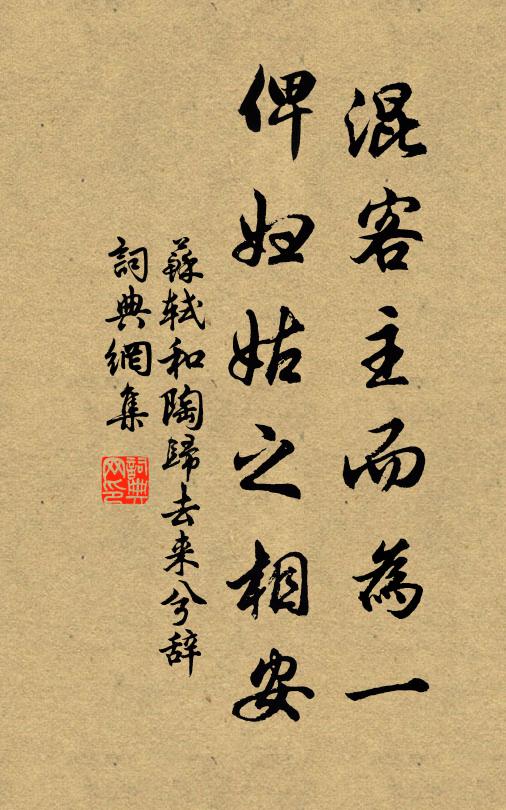 混客主而為一
俾妇姑之相安
蘇軾和陶歸去来兮辞
詞典網集
詞典网印